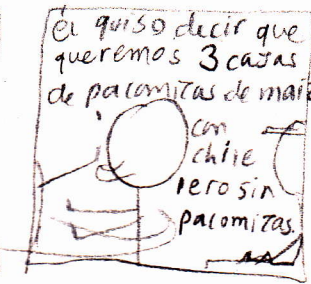 él quiso decir que
queremos 3 cajas
de palomitas de maiz
con
chile
pero sin
palomitas.